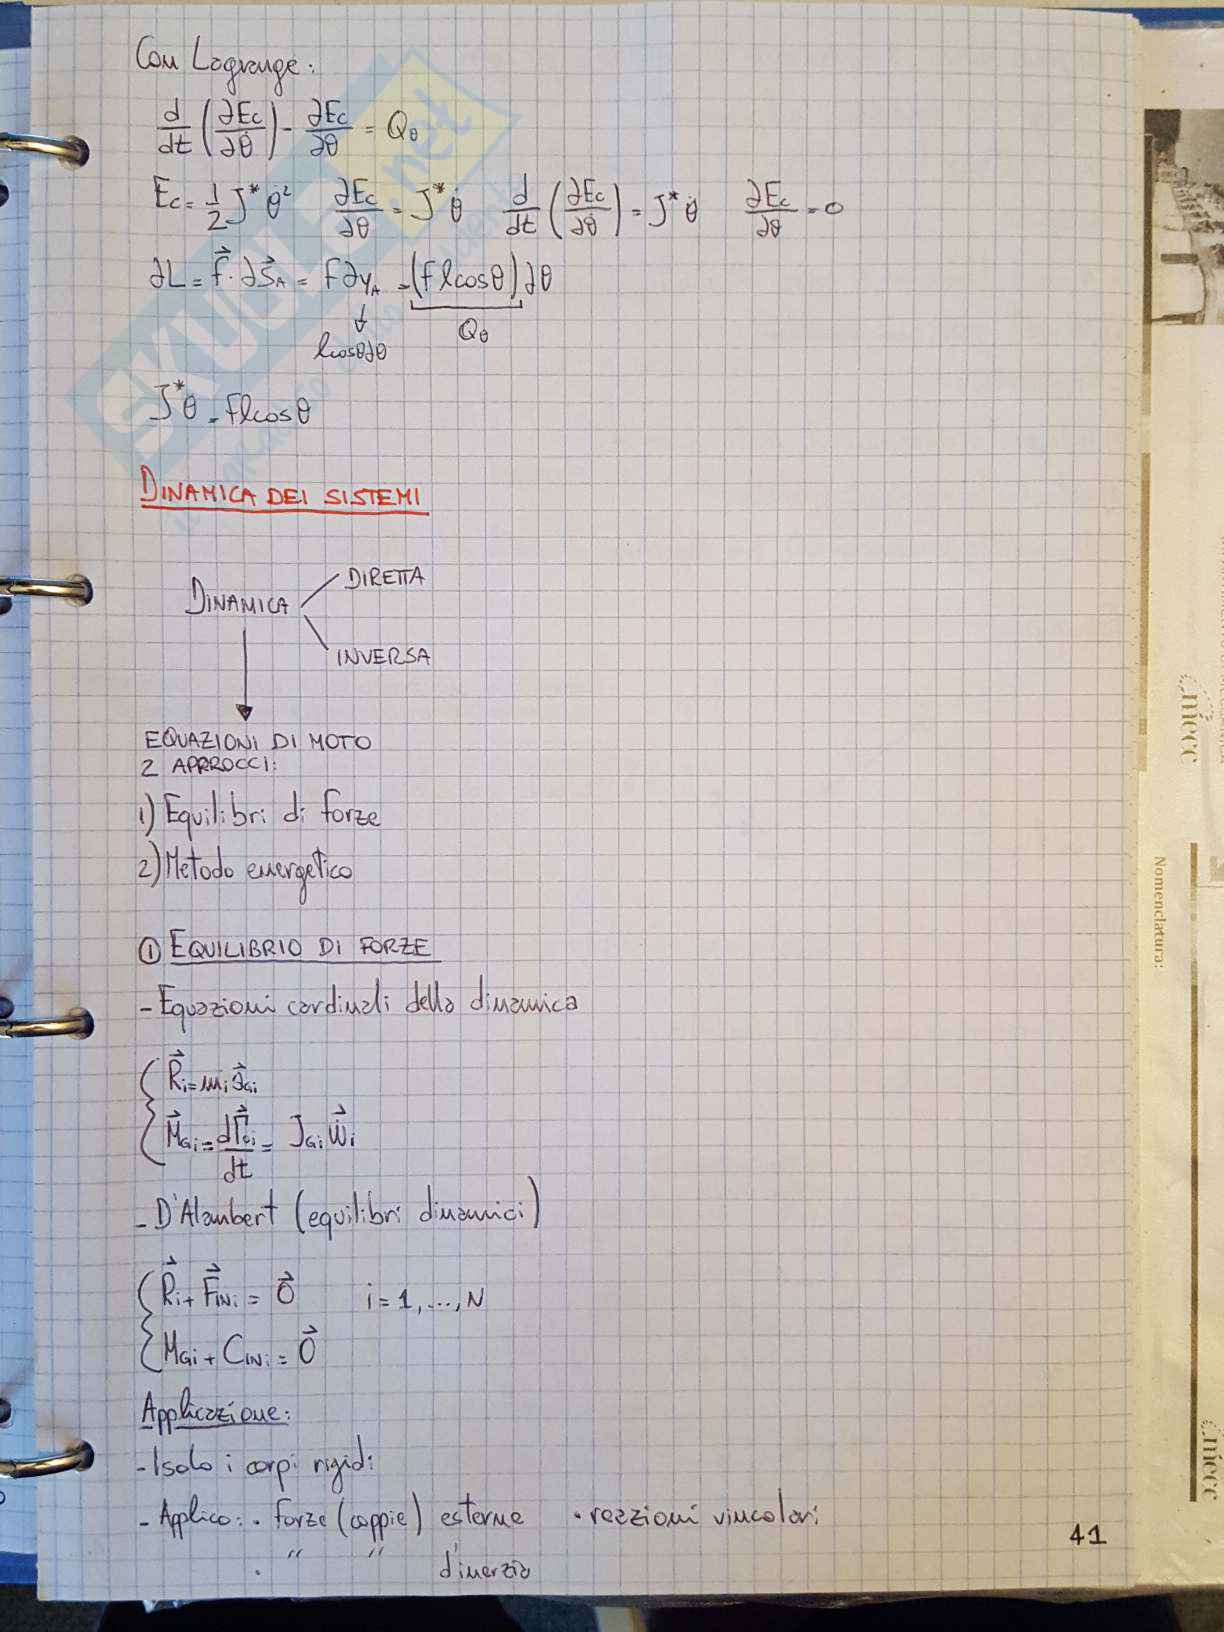 Con Lagrange:
d/dt (∂Ec/∂θ̇) - ∂Ec/∂θ = Qθ
Ec = 1/2 J* θ̇² ∂Ec/∂θ̇ = J* θ̇ d/dt (∂Ec/∂θ̇) = J* θ̈ ∂Ec/∂θ = 0
∂L = F⃗ · ∂S⃗A = F ∂yA = (F l cosθ) ∂θ
↓ Qθ
l cosθ ∂θ
J* θ̈ = F l cosθ
DINAMICA DEI SISTEMI
DIRETTA
DINAMICA
INVERSA
EQUAZIONI DI MOTO
2 APPROCCI:
1) Equilibri di forze
2) Metodo energetico
① EQUILIBRIO DI FORZE
- Equazioni cardinali della dinamica
{ R⃗i = mi a⃗Gi
M⃗Gi = dΓ⃗Gi/dt = JGi ω̇⃗i
- D'Alambert (equilibri dinamici)
{ R⃗i + F⃗INi = 0⃗ i = 1, ..., N
MGi + CINi = 0⃗
Applicazione:
- Isolo i corpi rigidi
- Applico: · forze (coppie) esterne · reazioni vincolari
· " " d'inerzia
41
SKUOLA.net
Nomenclatura: